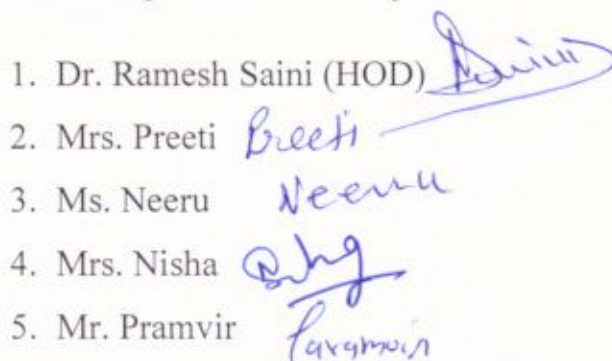 1. Dr. Ramesh Saini (HOD)
2. Mrs. Preeti Preeti
3. Ms. Neeru Neeru
4. Mrs. Nisha
5. Mr. Pramvir Paramvir